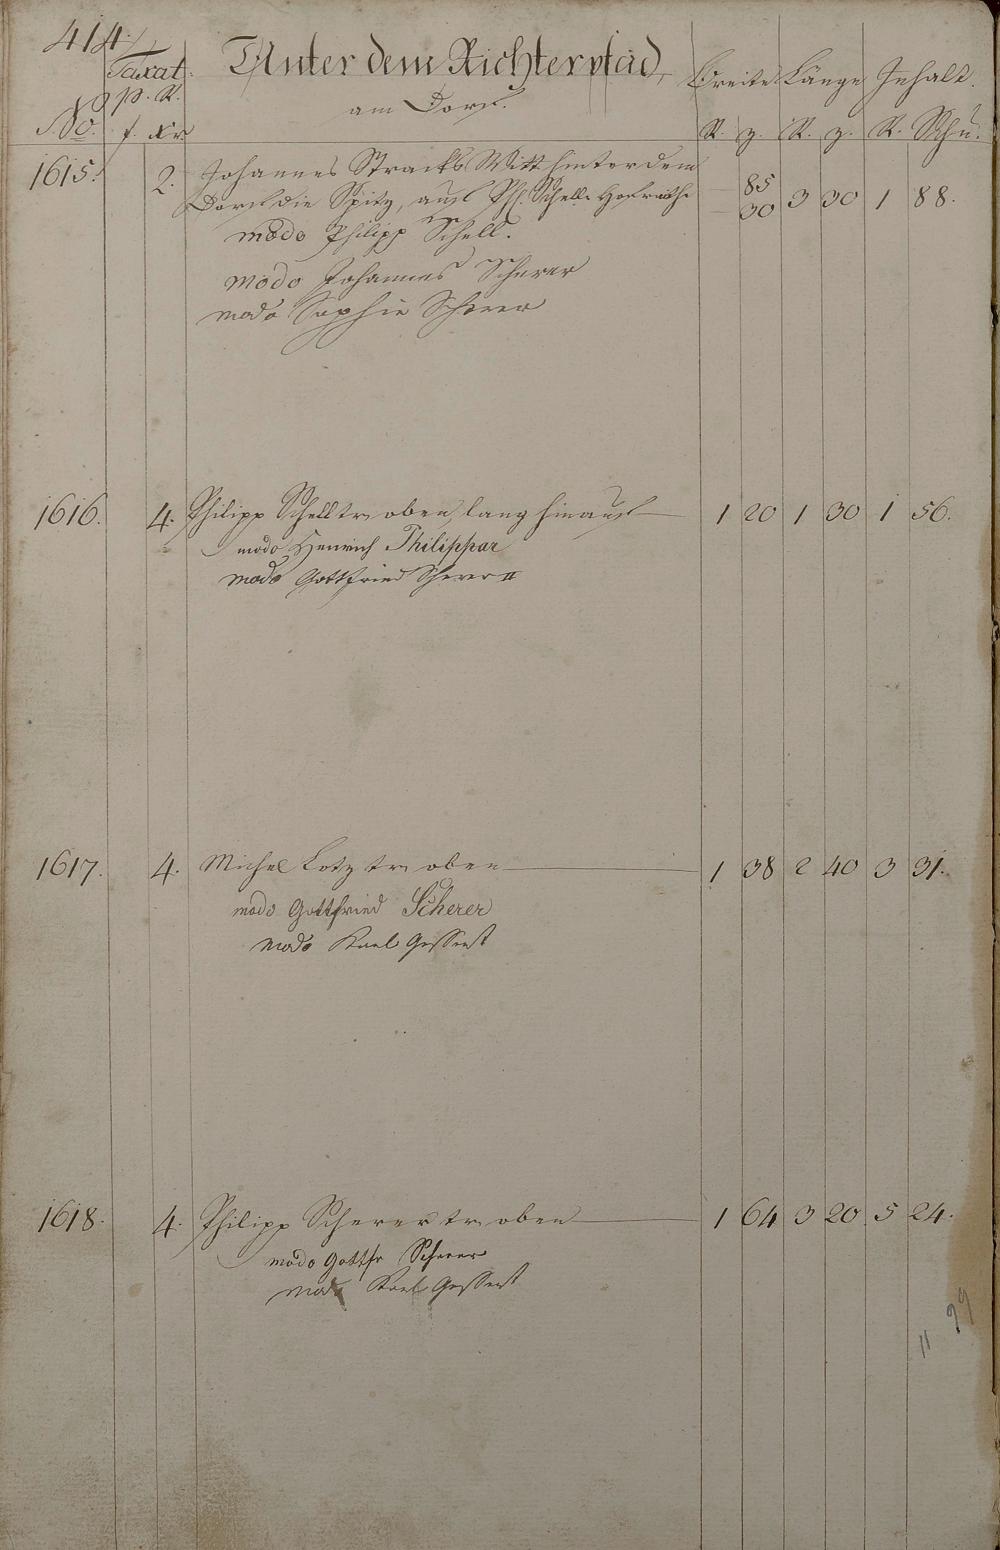 414.
Taxat. Unter dem Richterpfad, Breite Länge Inhalt.
p. R. am Dorf.
No. f. Xr. R. z. R. z. R. Schu.
1615. 2. Johannes Stracks Witt hinter dem 85
Dorf die Spitz, auf Ph. Schells Hofraithe 30 3 30 1 88.
modo Philipp Schell.
modo Johannes Scherer
modo Sophie Scherer
1616. 4. Philipp Schell tr. oben, lang hinauf 1 20 1 30 1 56.
modo Henrich Philippar
modo Gottfried Scherer II
1617. 4. Michel Lotz tr. oben 1 38 2 40 3 31.
modo Gottfried Scherer
modo Karl Gessert
1618. 4. Philipp Scherer tr. oben 1 64 3 20 5 24.
modo Gottfr Scherer
modo Karl Gessert
11 99